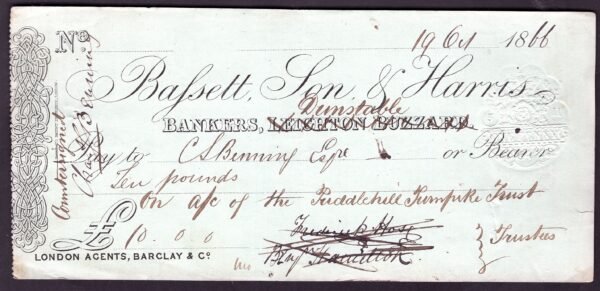 No. 19 Oct 1866
Bassett, Son & Harris
Dunstable
BANKERS, LEIGHTON BUZZARD.
Pay to C S Benning Esqre or Bearer
Ten pounds
On a/c of the Puddlehill Turnpike Trust
£ 10. 0. 0
Trustees
LONDON AGENTS, BARCLAY & Co.
Countersigned